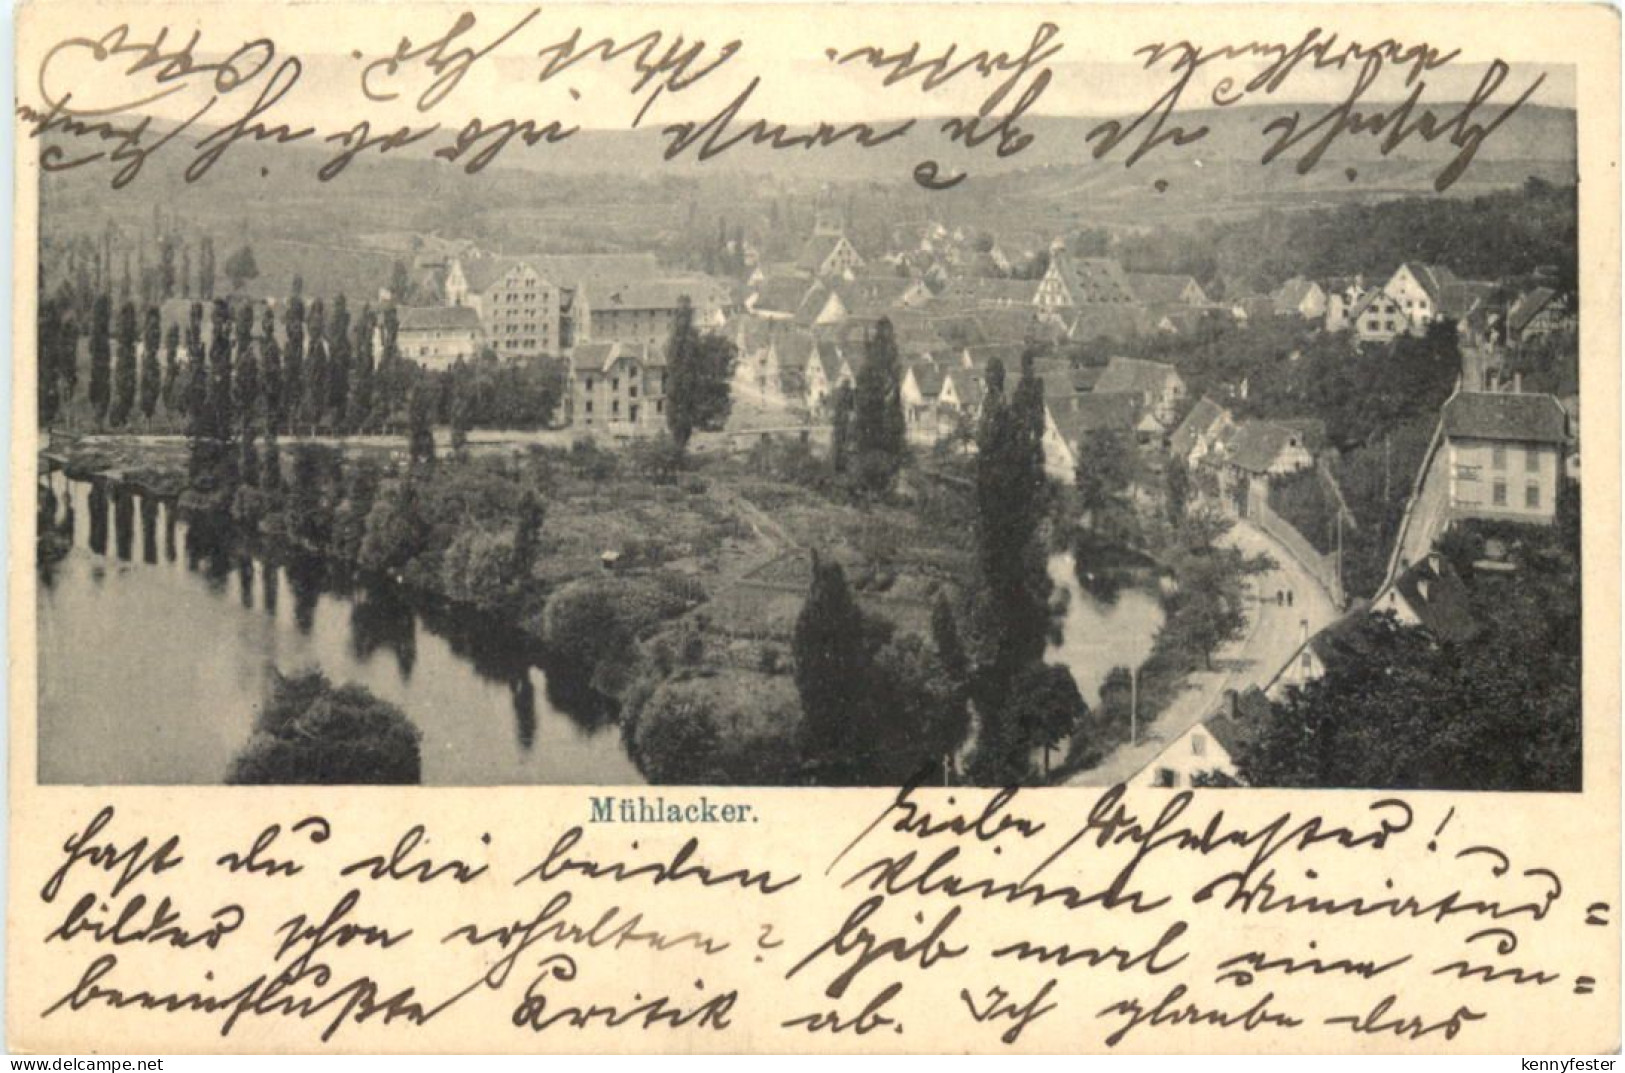 Mühlacker.
Liebe Schwester!
hast du die beiden kleinen Miniatur=
bilder schon erhalten? Gib mal eine un=
beeinflußte Kritik ab. Ich glaube das
Gesicht ist zu ernst, als ob ich
hätte. Mit
kennyfester